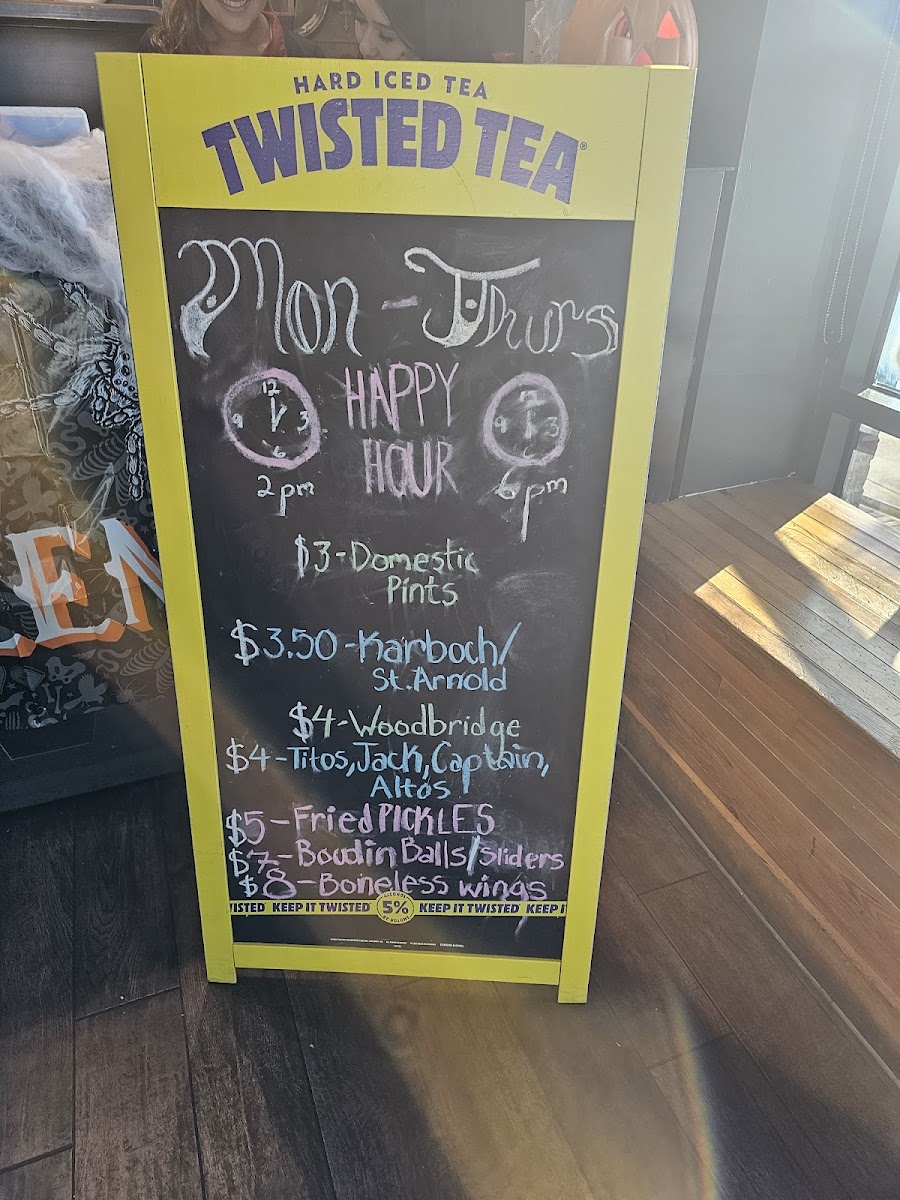 HARD ICED TEA
TWISTED TEA®
Mon - Thurs
HAPPY
HOUR
12
9 3
6
2pm
12
9 3
6
6pm
$3-Domestic
Pints
$3.50-Karboch/
St.Arnold
$4-Woodbridge
$4-Titos,Jack,Captain,
Altos
$5-Fried PICKLES
$7-Boudin Balls/Sliders
$8-Boneless wings
ISTED KEEP IT TWISTED ALCOHOL 5% BY VOLUME KEEP IT TWISTED KEEP I
LEN